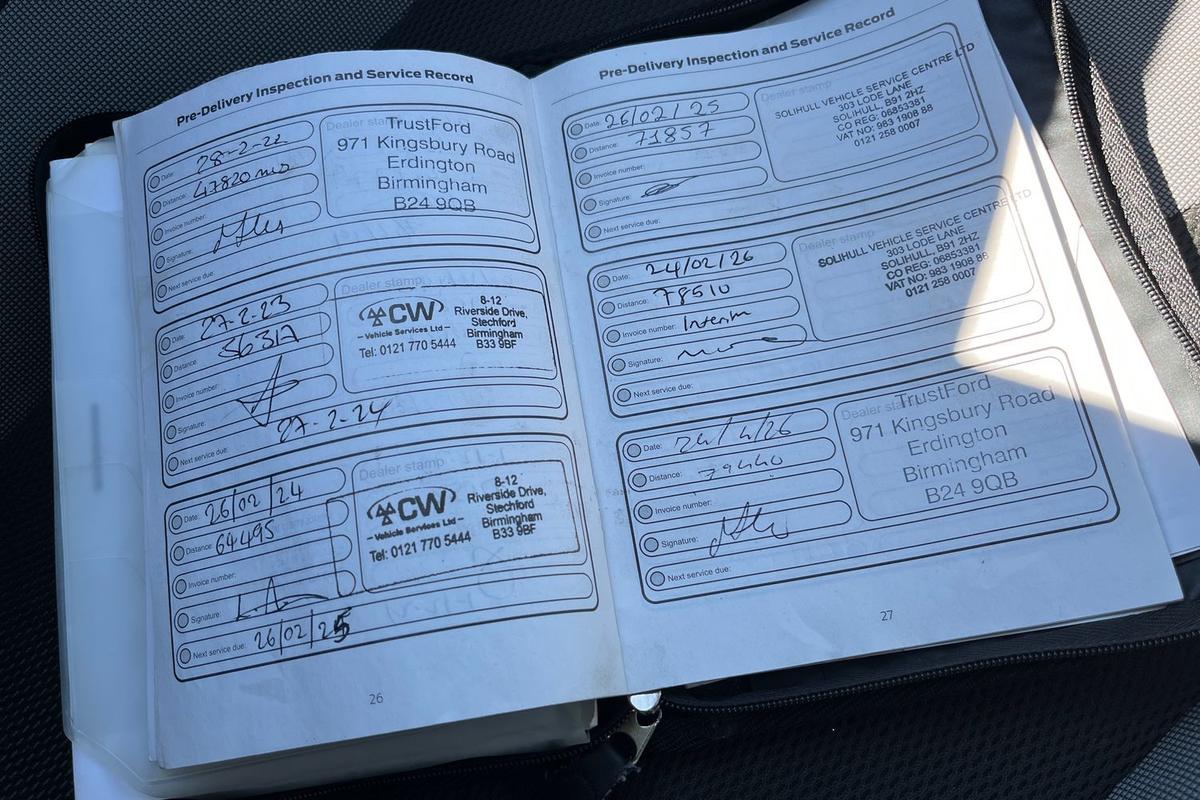 Pre-Delivery Inspection and Service Record
Date: 28-2-22
Distance: 47820 mls
Invoice number:
Signature:
Next service due:
Dealer stamp
TrustFord
971 Kingsbury Road
Erdington
Birmingham
B24 9QB
Date: 27-2-23
Distance:
Invoice number:
Signature:
Next service due: 27-2-24
CW
Vehicle Services Ltd
Tel: 0121 770 5444
8-12
Riverside Drive,
Stechford
Birmingham
B33 9BF
Date: 26/02/24
Distance: 64495
Invoice number:
Signature:
Next service due: 26/02/25
Dealer stamp
CW
Vehicle Services Ltd
Tel: 0121 770 5444
8-12
Riverside Drive,
Stechford
Birmingham
B33 9BF
26
Pre-Delivery Inspection and Service Record
Date: 26/02/25
Distance: 71857
Invoice number:
Signature:
Next service due:
Dealer stamp
SOLIHULL VEHICLE SERVICE CENTRE LTD
303 LODE LANE
SOLIHULL, B91 2HZ
CO REG: 06853381
VAT NO: 983 1908 88
0121 258 0007
Date: 24/02/26
Distance: 78510
Invoice number: Interim
Signature:
Next service due:
Dealer stamp
SOLIHULL VEHICLE SERVICE CENTRE LTD
303 LODE LANE
SOLIHULL, B91 2HZ
CO REG: 06853381
VAT NO: 983 1908 88
0121 258 0007
Date: 24/4/26
Distance: 79440
Invoice number:
Signature:
Next service due:
Dealer stamp
TrustFord
971 Kingsbury Road
Erdington
Birmingham
B24 9QB
27